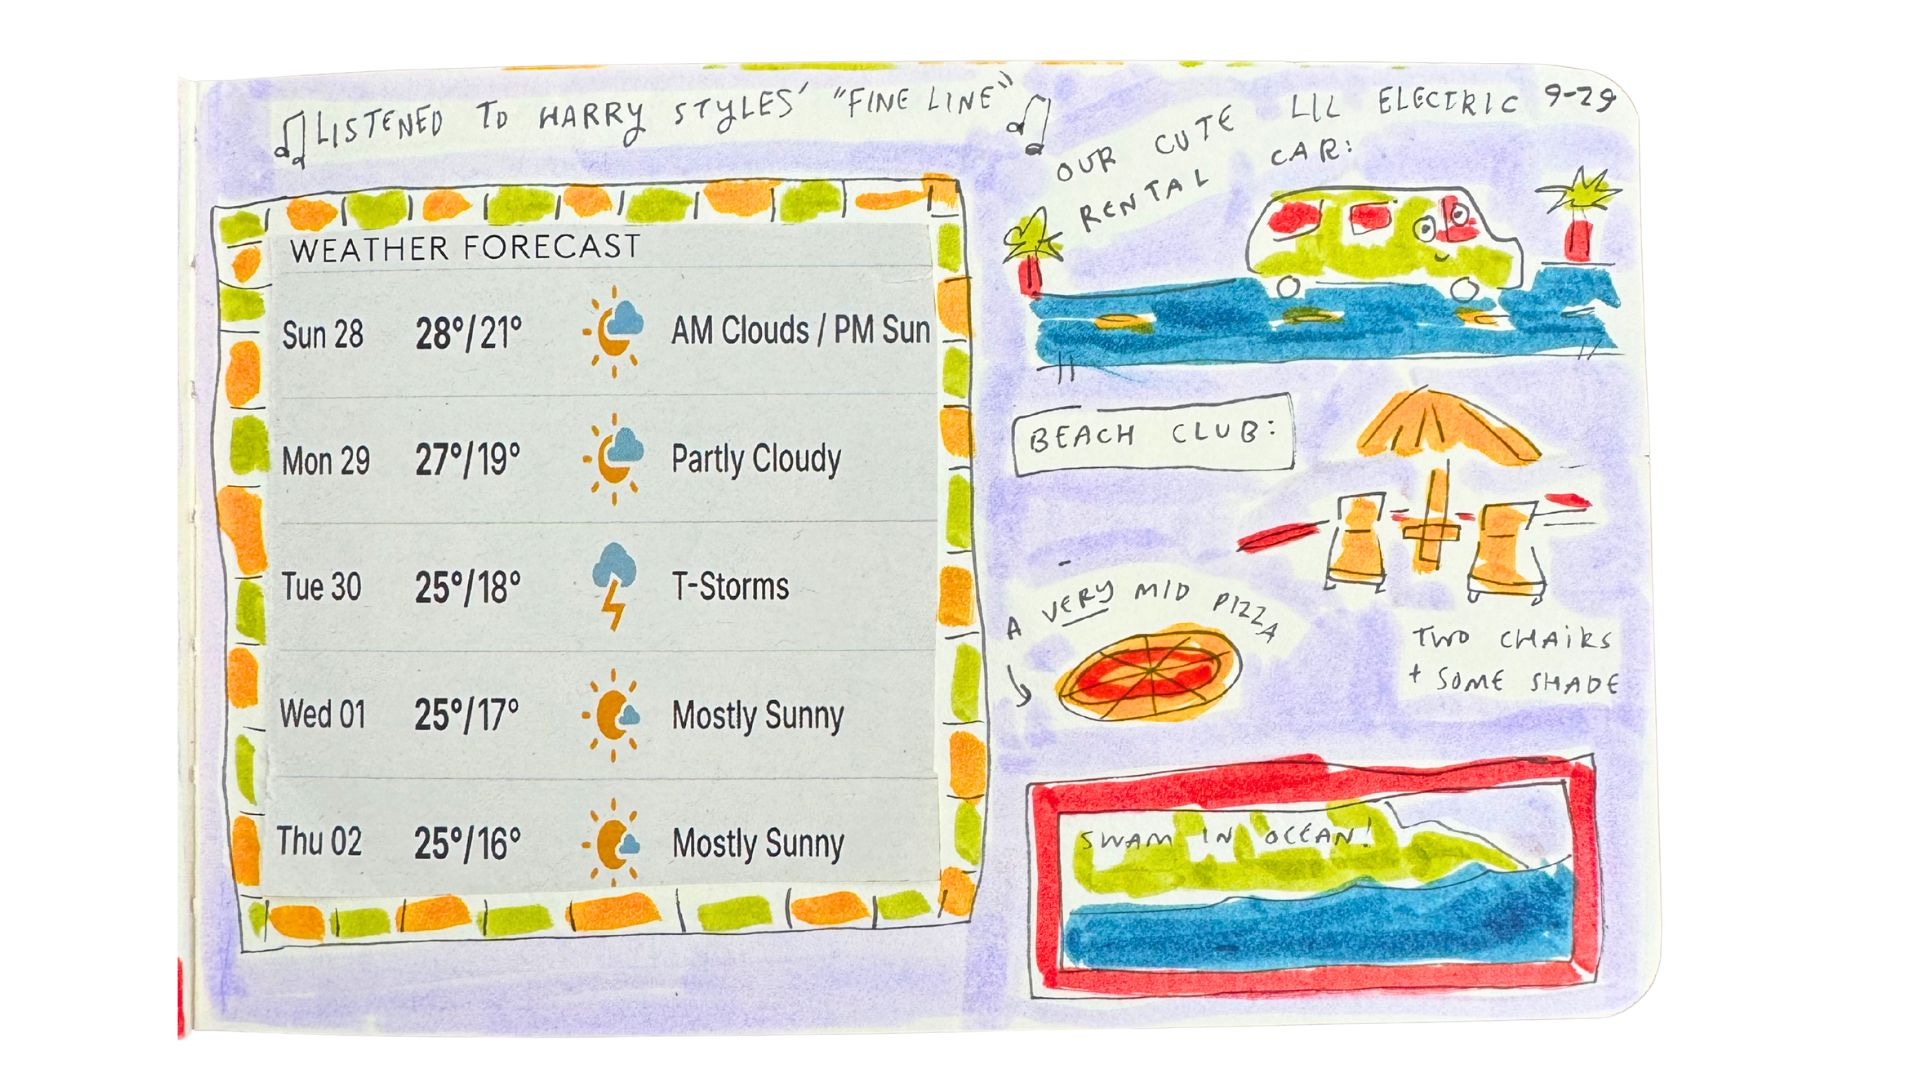 LISTENED TO HARRY STYLES' "FINE LINE"
WEATHER FORECAST
Sun 28 28°/21° AM Clouds / PM Sun
Mon 29 27°/19° Partly Cloudy
Tue 30 25°/18° T-Storms
Wed 01 25°/17° Mostly Sunny
Thu 02 25°/16° Mostly Sunny
9-29
OUR CUTE LIL ELECTRIC
RENTAL CAR:
BEACH CLUB:
A VERY MID PIZZA
TWO CHAIRS
+ SOME SHADE
SWAM IN OCEAN!